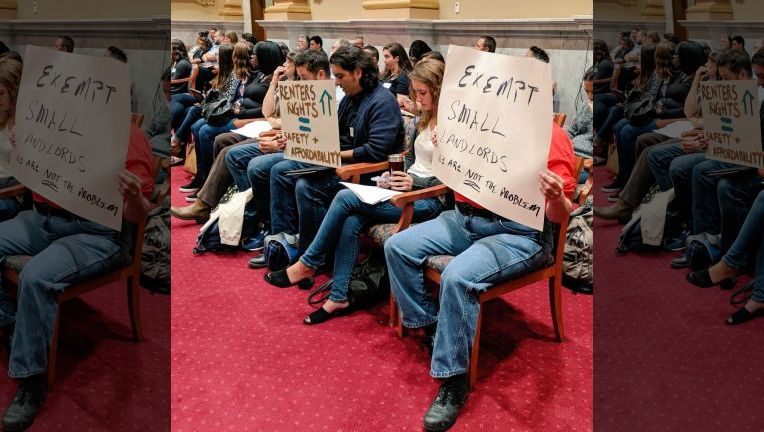 EXEMPT
SMALL
LANDLORDS
WE ARE NOT THE PROBLEM
RENTERS
RIGHTS
=
SAFETY +
AFFORDABILITY
EXEMPT
SMALL
LANDLORDS
WE ARE NOT THE PROBLEM
RENTERS
RIGHTS
=
SAFETY +
AFFORDABILITY